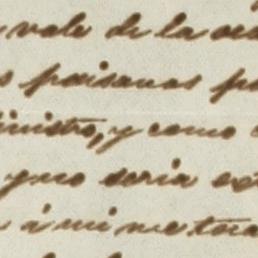 vale de la oca
s paisanos p
inistro, y como
y no seria ex
á mi me toca